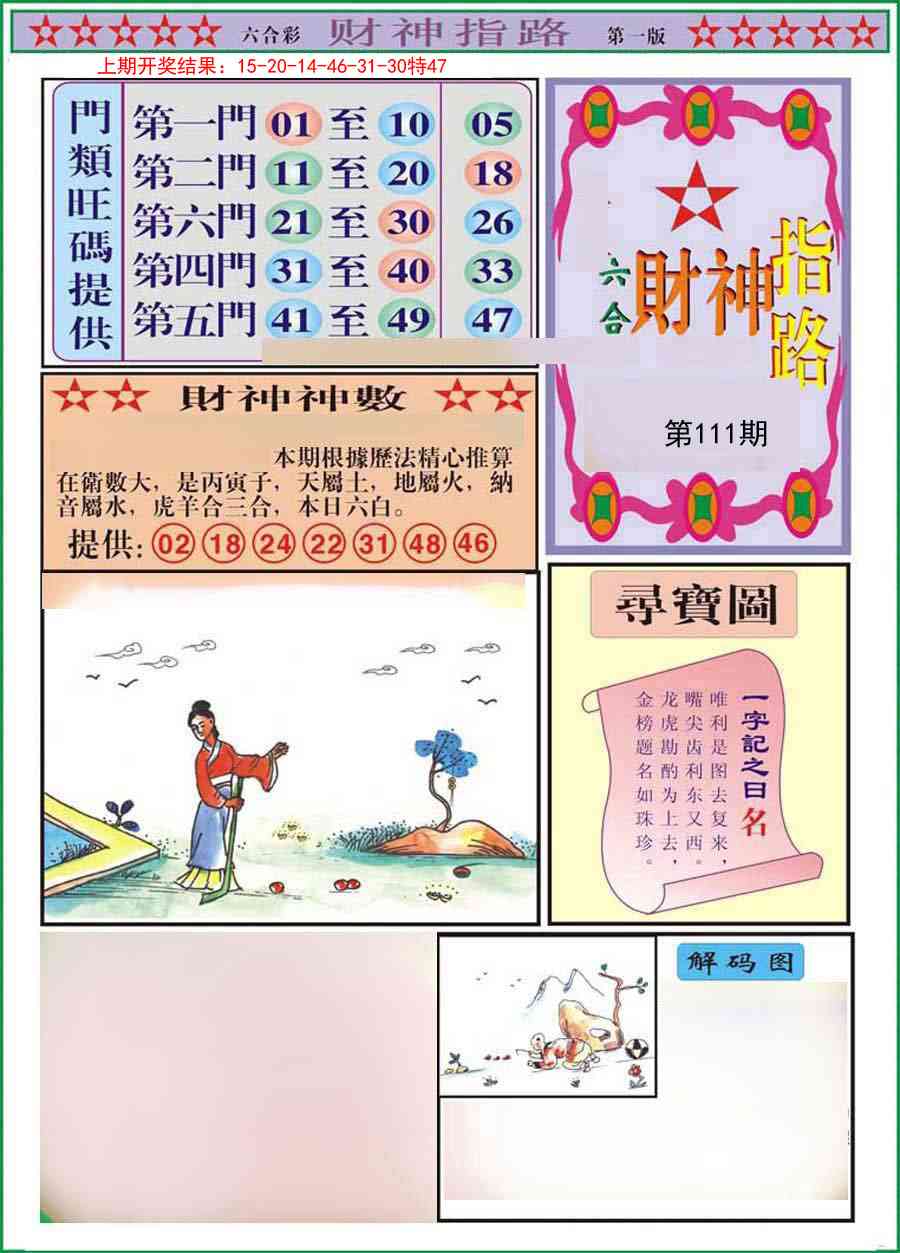 六合彩 财神指路 第一版
上期开奖结果：15-20-14-46-31-30特47
門類旺碼提供
第一門 01 至 10 05
第二門 11 至 20 18
第六門 21 至 30 26
第四門 31 至 40 33
第五門 41 至 49 47
六合
財神
指路
第111期
財神神數
本期根據歷法精心推算
在衛數大，是丙寅子，天屬土，地屬火，納
音屬水，虎羊合三合，本日六白。
提供: 02 18 24 22 31 48 46
尋寶圖
一字記之曰 名
唯利是图去复来，
嘴尖齿利东又西，
龙虎勘酌为上去，
金榜题名如珠珍。
解码图